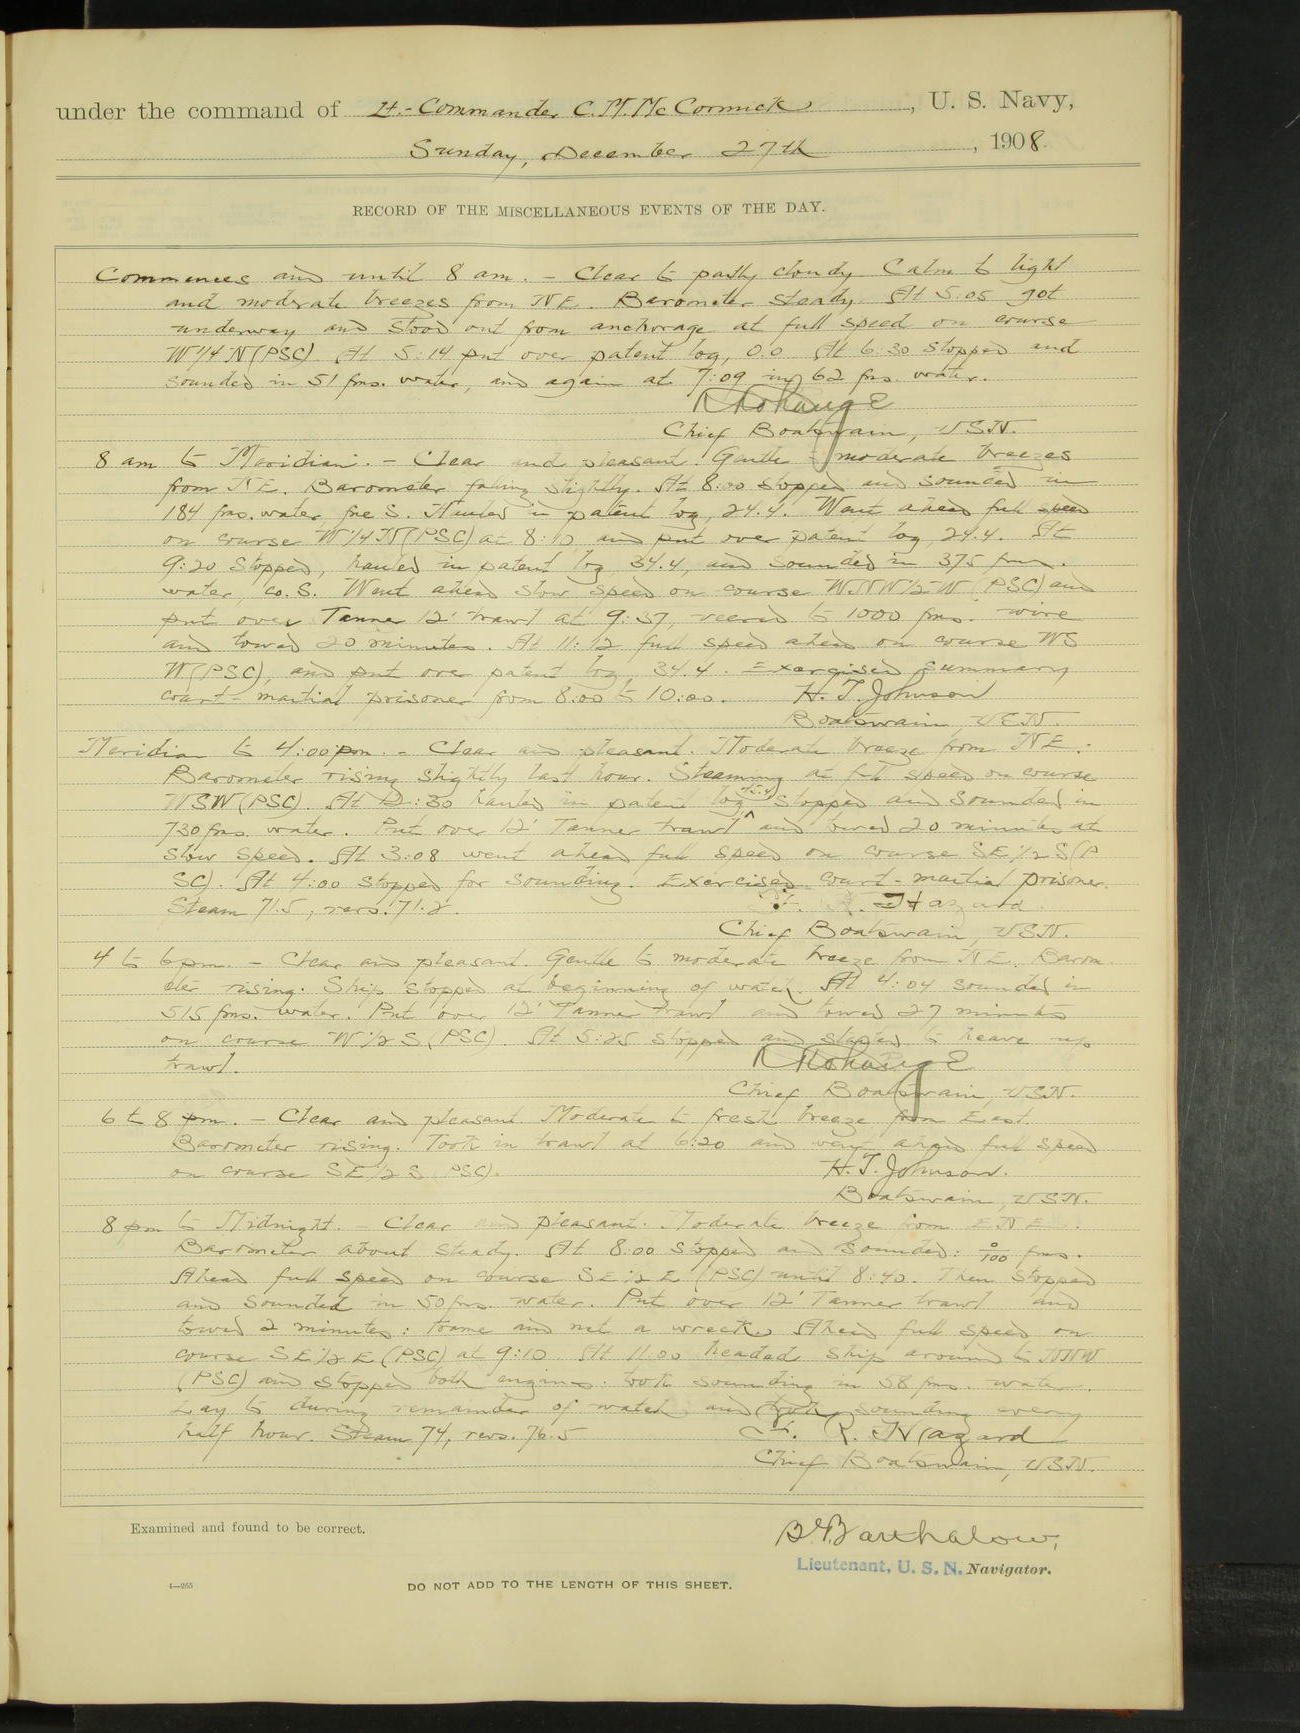 under the command of Lt.-Commander C. M. McCormick, U. S. Navy,
Sunday, December 27th, 1908.
RECORD OF THE MISCELLANEOUS EVENTS OF THE DAY.
Commences and until 8 am. - Clear to partly cloudy. Calm to light
and moderate breezes from NE. Barometer steady. At 5:05 got
underway and stood out from anchorage at full speed on course
W1/4N(PSC). At 5:14 put over patent log, 0.0 At 6:30 stopped and
sounded in 51 fms. water, and again at 7:09 in 62 fms. water.
Chief Boatswain, USN.
8 am to Meridian. - Clear and pleasant. Gentle - moderate breezes
from NE. Barometer falling slightly. At 8:00 stopped and sounded in
184 fms. water, fne S. Hauled in patent log, 24.4. Went ahead full speed
on course W1/4N(PSC) at 8:10 and put over patent log, 24.4. At
9:20 stopped, hauled in patent log 34.4, and sounded in 375 fms.
water, co. S. Went ahead slow speed on course WNW1/2W (PSC) and
put over Tanner 12' trawl at 9:37, veered to 1000 fms. wire
and towed 20 minutes. At 11:12 full speed ahead on course WS
W(PSC), and put over patent log, 34.4. Exercised summary
court-martial prisoner from 8:00 to 10:00. H. T. Johnson
Boatswain, USN.
Meridian to 4:00 pm. - Clear and pleasant. Moderate breeze from NE.
Barometer rising slightly last hour. Steaming at full speed on course
WSW(PSC). At 12:30 hauled in patent log, stopped and sounded in
730 fms. water. Put over 12' Tanner trawl and towed 20 minutes at
slow speed. At 3:08 went ahead full speed on course SE1/2S(P
SC). At 4:00 stopped for sounding. Exercised court-martial prisoner.
Steam 71.5, revs. 71.2. F. R. Hazard
Chief Boatswain, USN.
4 to 6 pm. - Clear and pleasant. Gentle to moderate breeze from NE. Barom-
eter rising. Ship stopped at beginning of watch. At 4:04 sounded in
515 fms. water. Put over 12' Tanner trawl and towed 27 minutes
on course W1/2S (PSC). At 5:25 stopped and started to heave up
trawl.
Chief Boatswain, USN.
6 to 8 pm. - Clear and pleasant. Moderate to fresh breeze from East.
Barometer rising. Took in trawl at 6:20 and went ahead full speed
on course SE1/2S (PSC). H. T. Johnson.
Boatswain, USN.
8 pm to Midnight. - Clear and pleasant. Moderate breeze from ENE.
Barometer about steady. At 8:00 stopped and sounded: 0/100 fms.
Ahead full speed on course SE1/2E (PSC) until 8:40. Then stopped
and sounded in 50 fms. water. Put over 12' Tanner trawl and
towed 2 minutes: frame and net a wreck. Ahead full speed on
course SE1/2E (PSC) at 9:10 At 11:00 headed ship around to NNW
(PSC) and stopped both engines. Took sounding in 58 fms. water.
Lay to during remainder of watch and took sounding every
half hour. Steam 74, revs. 76.5 F. R. Hazard
Chief Boatswain, USN.
Examined and found to be correct.
Lieutenant, U. S. N. Navigator.
4-265
DO NOT ADD TO THE LENGTH OF THIS SHEET.